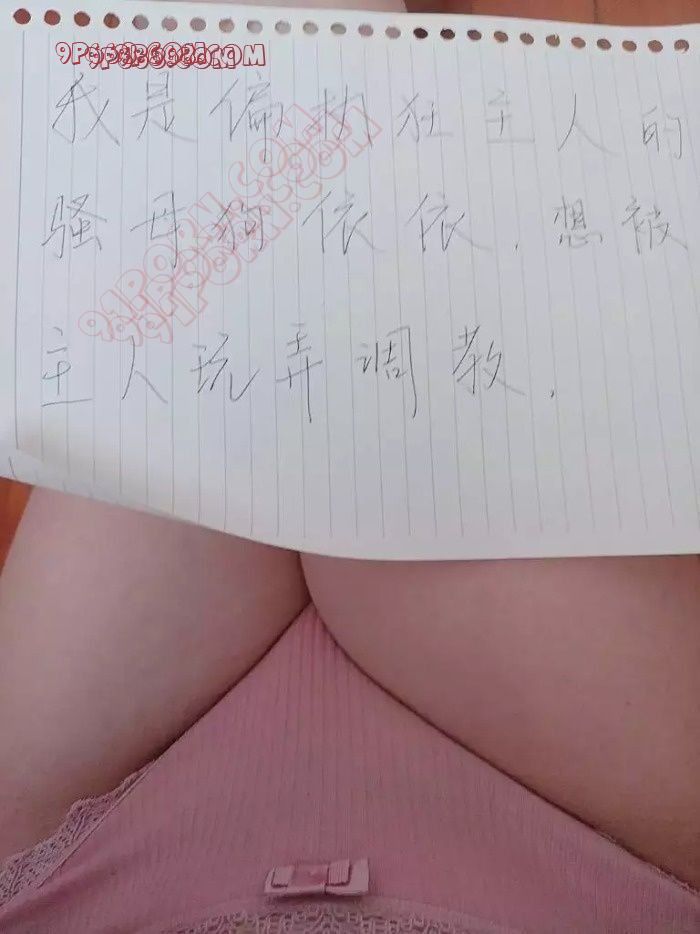 91PORN.COM
我是偏执狂主人的
骚母狗依依，想被
主人玩弄调教，